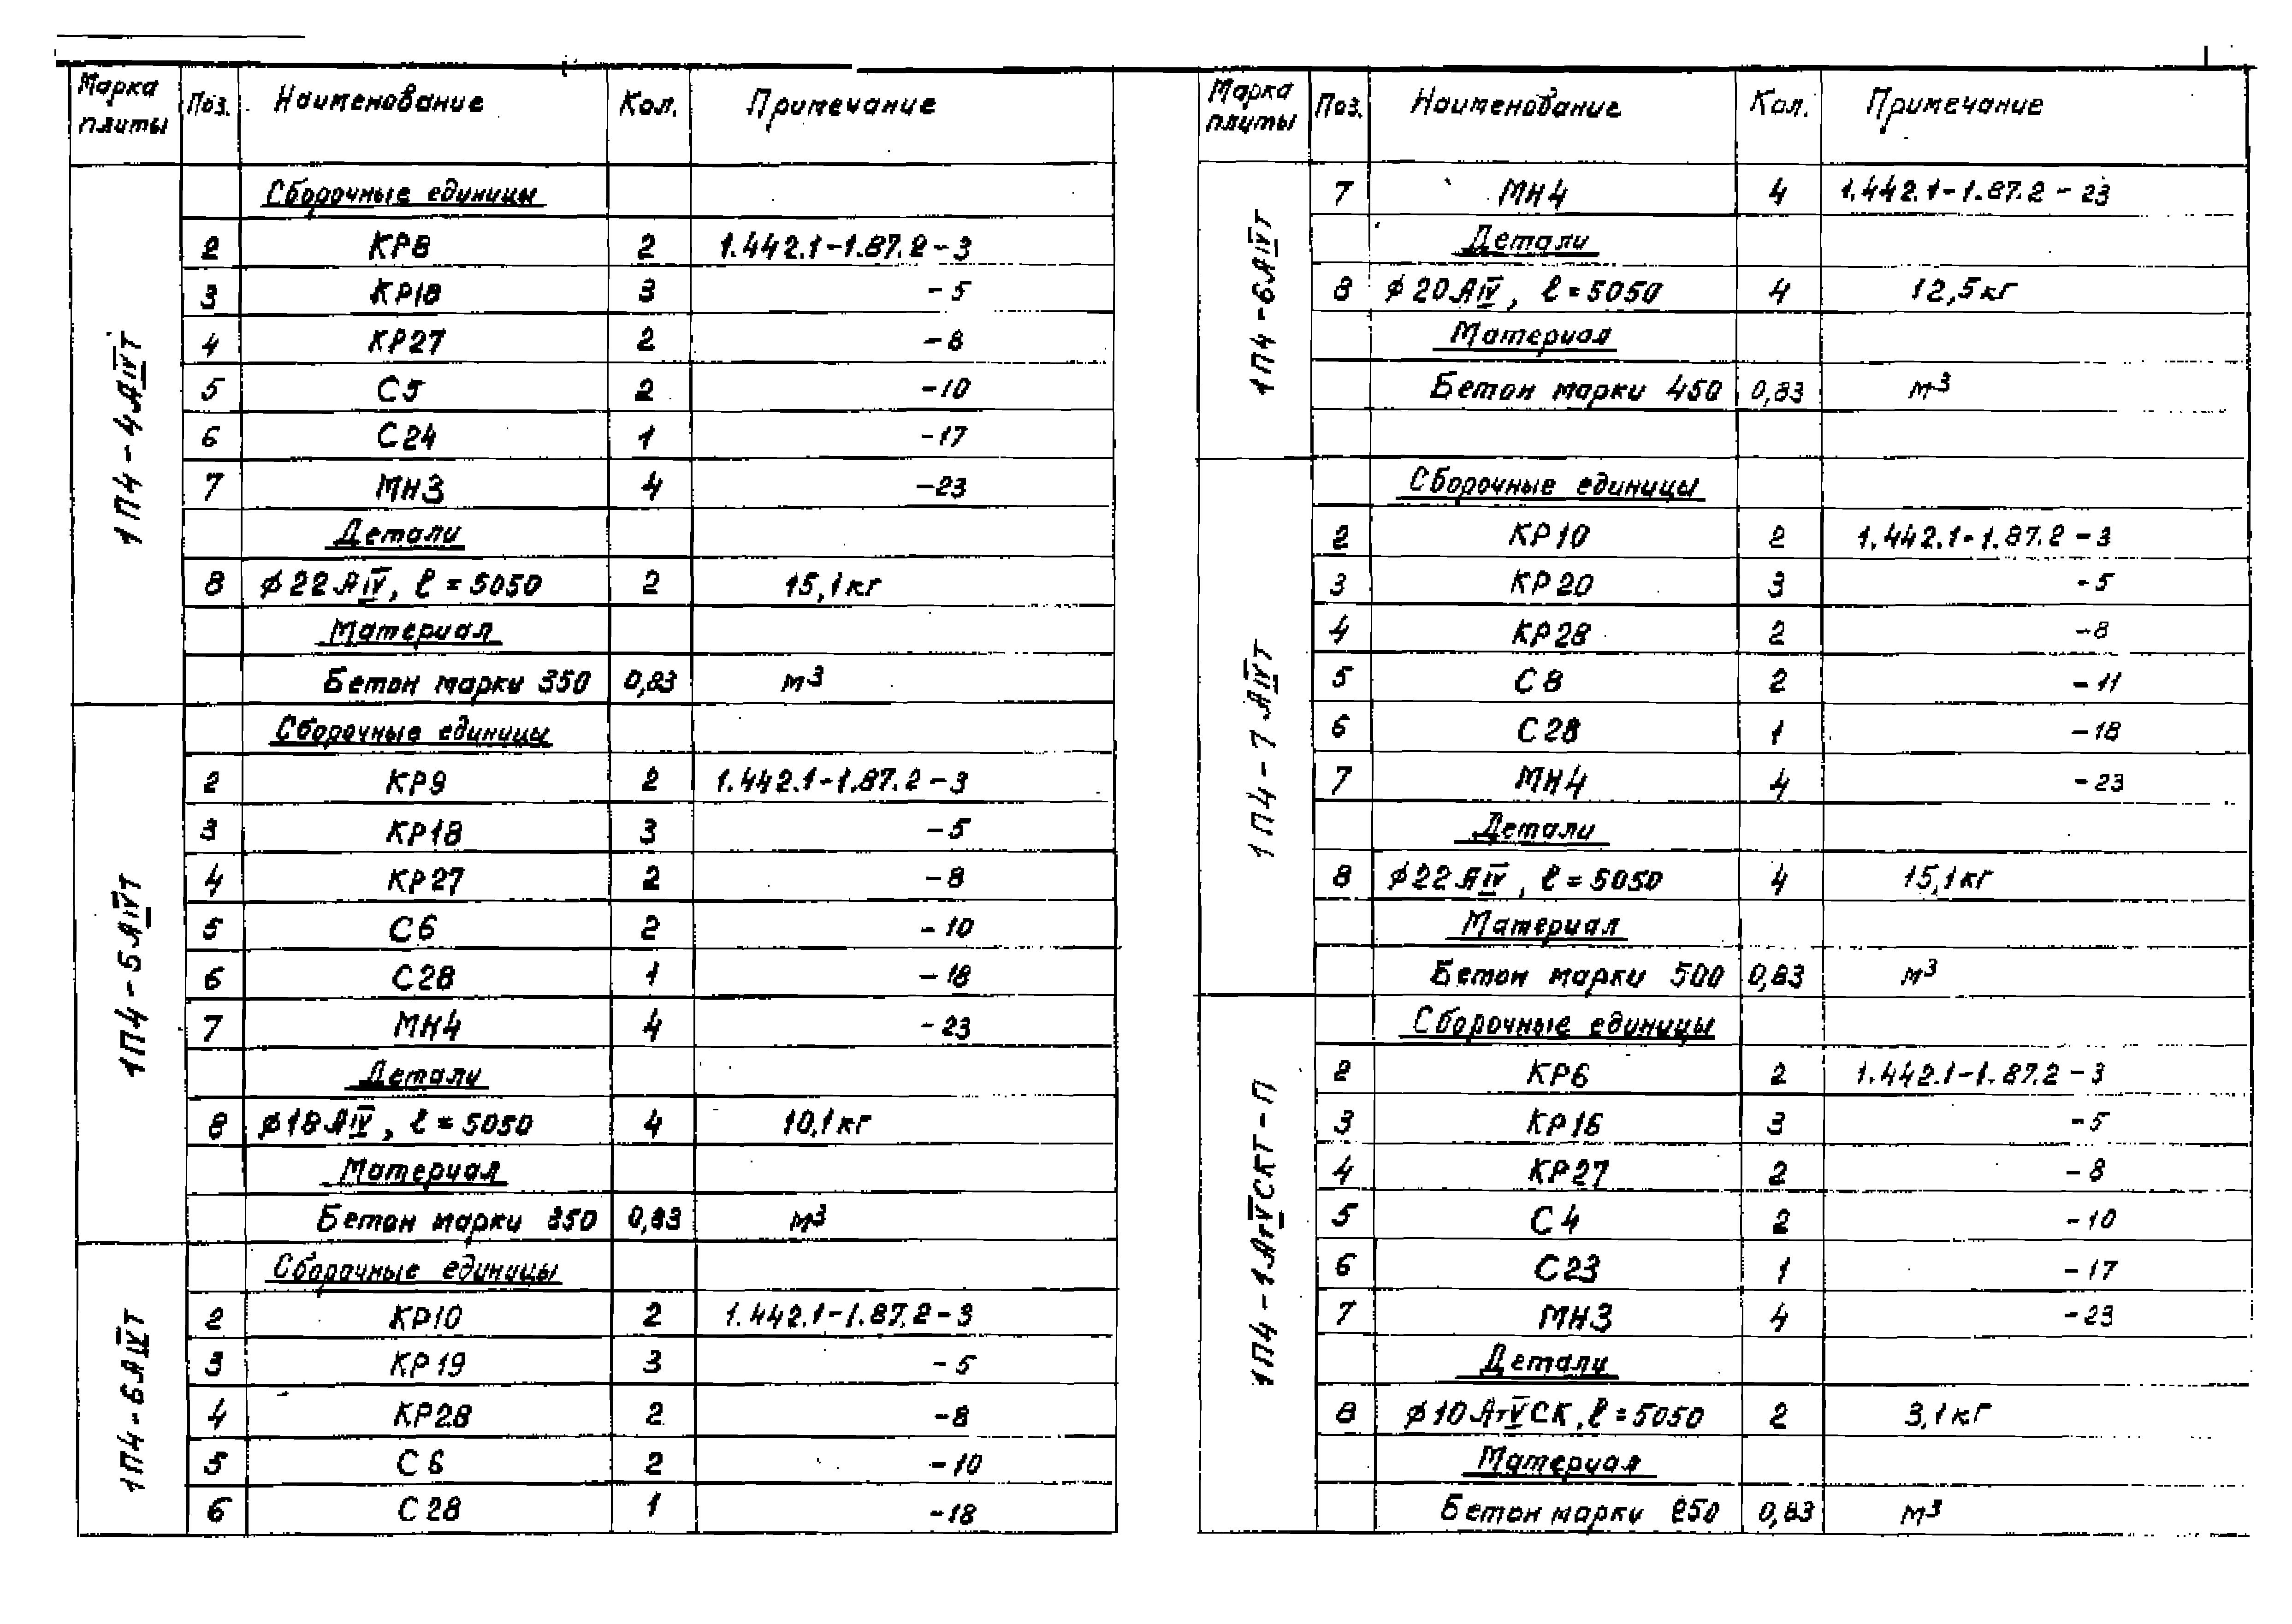 Марка плиты Поз. Наименование Кол. Примечание
1П4-4АIVТ
Сборочные единицы
2 КР8 2 1.442.1-1.87.2-3
3 КР18 3 -5
4 КР27 2 -8
5 С5 2 -10
6 С24 1 -17
7 МН3 4 -23
Детали
8 ϕ22АIV, ℓ=5050 2 15,1кг
Материал
Бетон марки 350 0,83 м³
1П4-5АIVТ
Сборочные единицы
2 КР9 2 1.442.1-1.87.2-3
3 КР18 3 -5
4 КР27 2 -8
5 С6 2 -10
6 С28 1 -18
7 МН4 4 -23
Детали
8 ϕ18АIV, ℓ=5050 4 10,1кг
Материал
Бетон марки 350 0,83 м³
1П4-6АIVТ
Сборочные единицы
2 КР10 2 1.442.1-1.87.2-3
3 КР19 3 -5
4 КР28 2 -8
5 С6 2 -10
6 С28 1 -18
Марка плиты Поз. Наименование Кол. Примечание
1П4-6АIVТ
7 МН4 4 1.442.1-1.87.2-23
Детали
8 ϕ20АIV, ℓ=5050 4 12,5кг
Материал
Бетон марки 450 0,83 м³
1П4-7АIVТ
Сборочные единицы
2 КР10 2 1.442.1-1.87.2-3
3 КР20 3 -5
4 КР28 2 -8
5 С8 2 -11
6 С28 1 -18
7 МН4 4 -23
Детали
8 ϕ22АIV, ℓ=5050 4 15,1кг
Материал
Бетон марки 500 0,83 м³
1П4-1АтVСКТ-П
Сборочные единицы
2 КР6 2 1.442.1-1.87.2-3
3 КР16 3 -5
4 КР27 2 -8
5 С4 2 -10
6 С23 1 -17
7 МН3 4 -23
Детали
8 ϕ10АтVСК, ℓ=5050 2 3,1кг
Материал
Бетон марки 250 0,83 м³